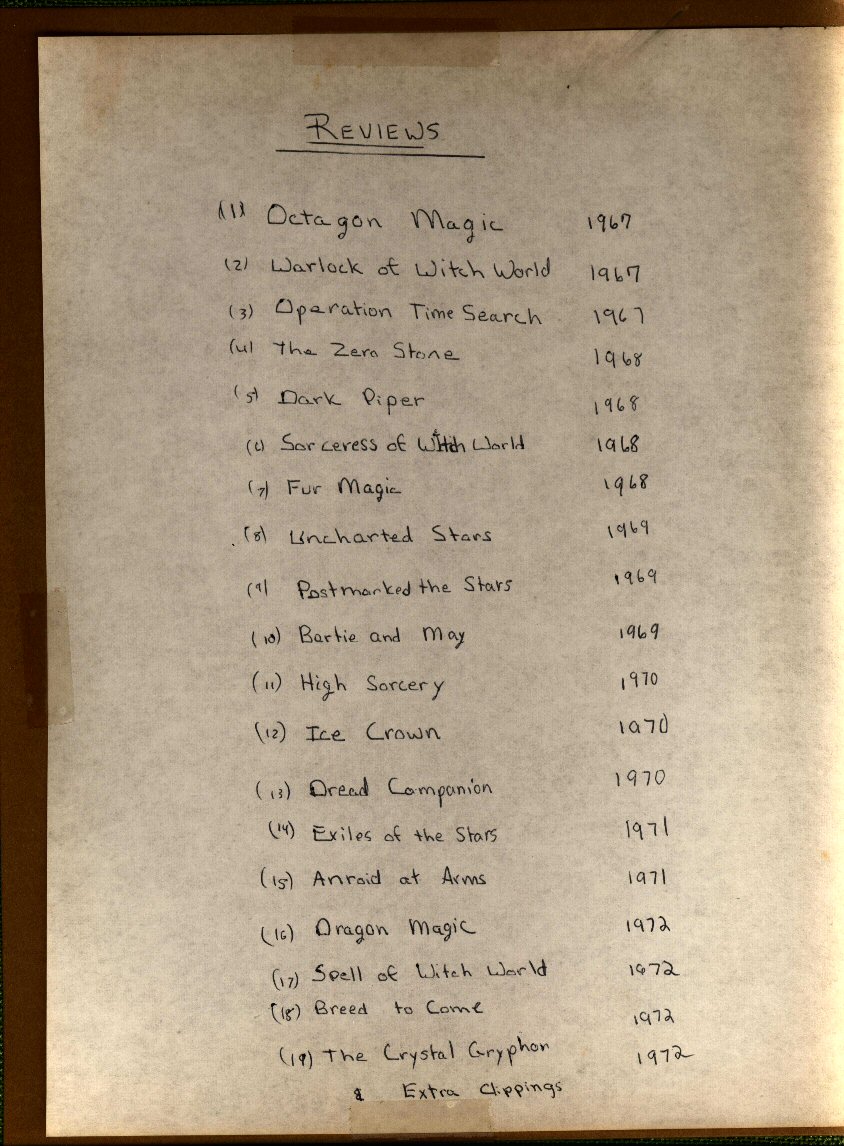 REVIEWS
(1) Octagon Magic 1967
(2) Warlock of Witch World 1967
(3) Operation Time Search 1967
(4) The Zero Stone 1968
(5) Dark Piper 1968
(6) Sorceress of Witch World 1968
(7) Fur Magic 1968
(8) Uncharted Stars 1969
(9) Postmarked the Stars 1969
(10) Bertie and May 1969
(11) High Sorcery 1970
(12) Ice Crown 1970
(13) Dread Companion 1970
(14) Exiles of the Stars 1971
(15) Anroid at Arms 1971
(16) Dragon Magic 1972
(17) Spell of Witch World 1972
(18) Breed to Come 1972
(19) The Crystal Gryphon 1972
& Extra Clippings